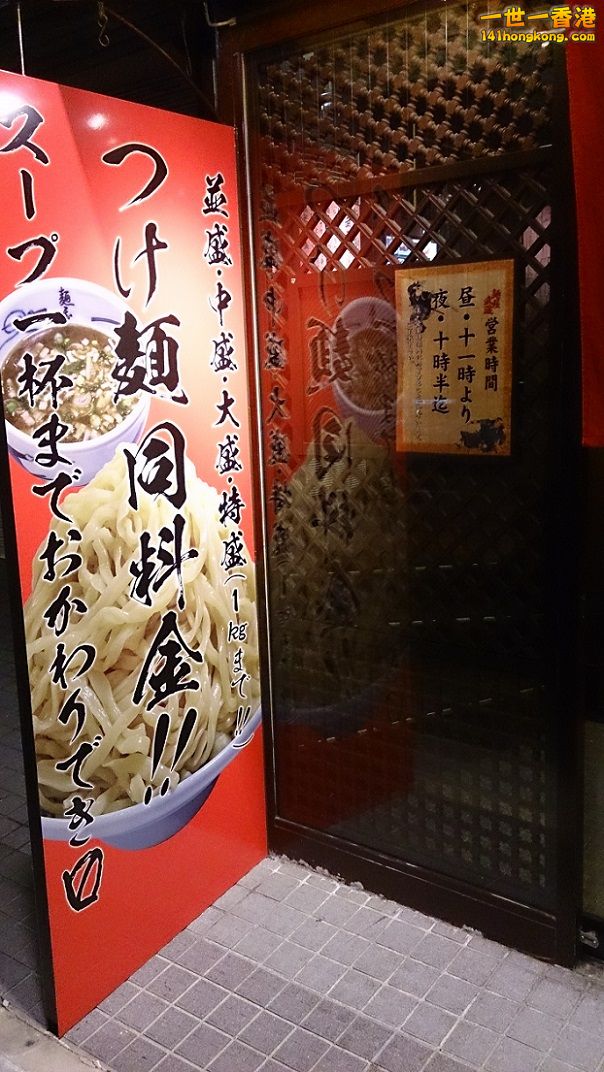 一世一香港
141hongkong.com
並盛・中盛・大盛・特盛(1kgまで!!)
つけ麺 同料金!!
スープ一杯までおかわりでき〼
営業時間
昼・十一時より
夜・十時半迄